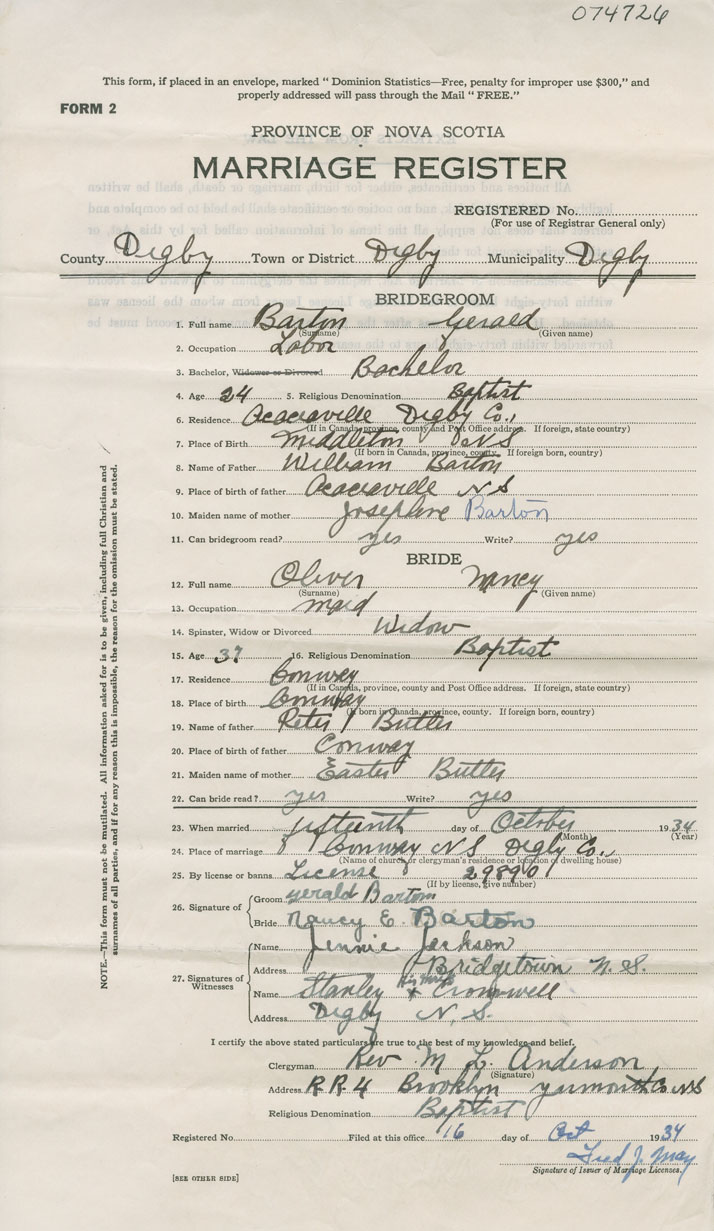 074726
This form, if placed in an envelope, marked "Dominion Statistics—Free, penalty for improper use $300," and
properly addressed will pass through the Mail "FREE."
FORM 2
PROVINCE OF NOVA SCOTIA
MARRIAGE REGISTER
REGISTERED No.
(For use of Registrar General only)
County Digby Town or District Digby Municipality Digby
BRIDEGROOM
1. Full name Barton Gerald
(Surname) (Given name)
2. Occupation Labor
3. Bachelor, Widower or Divorced Bachelor
4. Age 24 5. Religious Denomination Baptist
6. Residence Acaciaville Digby Co.,
(If in Canada, province, county and Post Office address. If foreign, state country)
7. Place of Birth Middleton NS
(If born in Canada, province, county. If foreign born, country)
8. Name of Father William Barton
9. Place of birth of father Acaciaville NS
10. Maiden name of mother Josephine Barton
11. Can bridegroom read? yes Write? yes
BRIDE
12. Full name Oliver Nancy
(Surname) (Given name)
13. Occupation maid
14. Spinster, Widow or Divorced Widow
15. Age 37 16. Religious Denomination Baptist
17. Residence Conway
(If in Canada, province, county and Post Office address. If foreign, state country)
18. Place of birth Conway
(If born in Canada, province, county. If foreign born, country)
19. Name of father Peter Butler
20. Place of birth of father Conway
21. Maiden name of mother Easter Butler
22. Can bride read? yes Write? yes
23. When married fifteenth day of October 1934
(Month) (Year)
24. Place of marriage Conway NS Digby Co.,
(Name of church or clergyman's residence or location of dwelling house)
25. By license or banns License 29890
(If by license, give number)
26. Signature of
Groom Gerald Barton
Bride Nancy E. Barton
27. Signatures of Witnesses
Name Jennie Jackson
Address Bridgetown N.S.
his mark
Name Stanley x Cromwell
Address Digby N.S.
I certify the above stated particulars are true to the best of my knowledge and belief.
Clergyman Rev M L. Anderson
(Signature)
Address R.R.4 Brooklyn Yarmouth Co. NS
Religious Denomination Baptist
Registered No. Filed at this office 16 day of Oct 1934
Fred J. May
Signature of Issuer of Marriage Licenses.
[SEE OTHER SIDE]
NOTE.—This form must not be mutilated. All information asked for is to be given, including full Christian and
surnames of all parties, and if for any reason this is impossible, the reason for the omission must be stated.